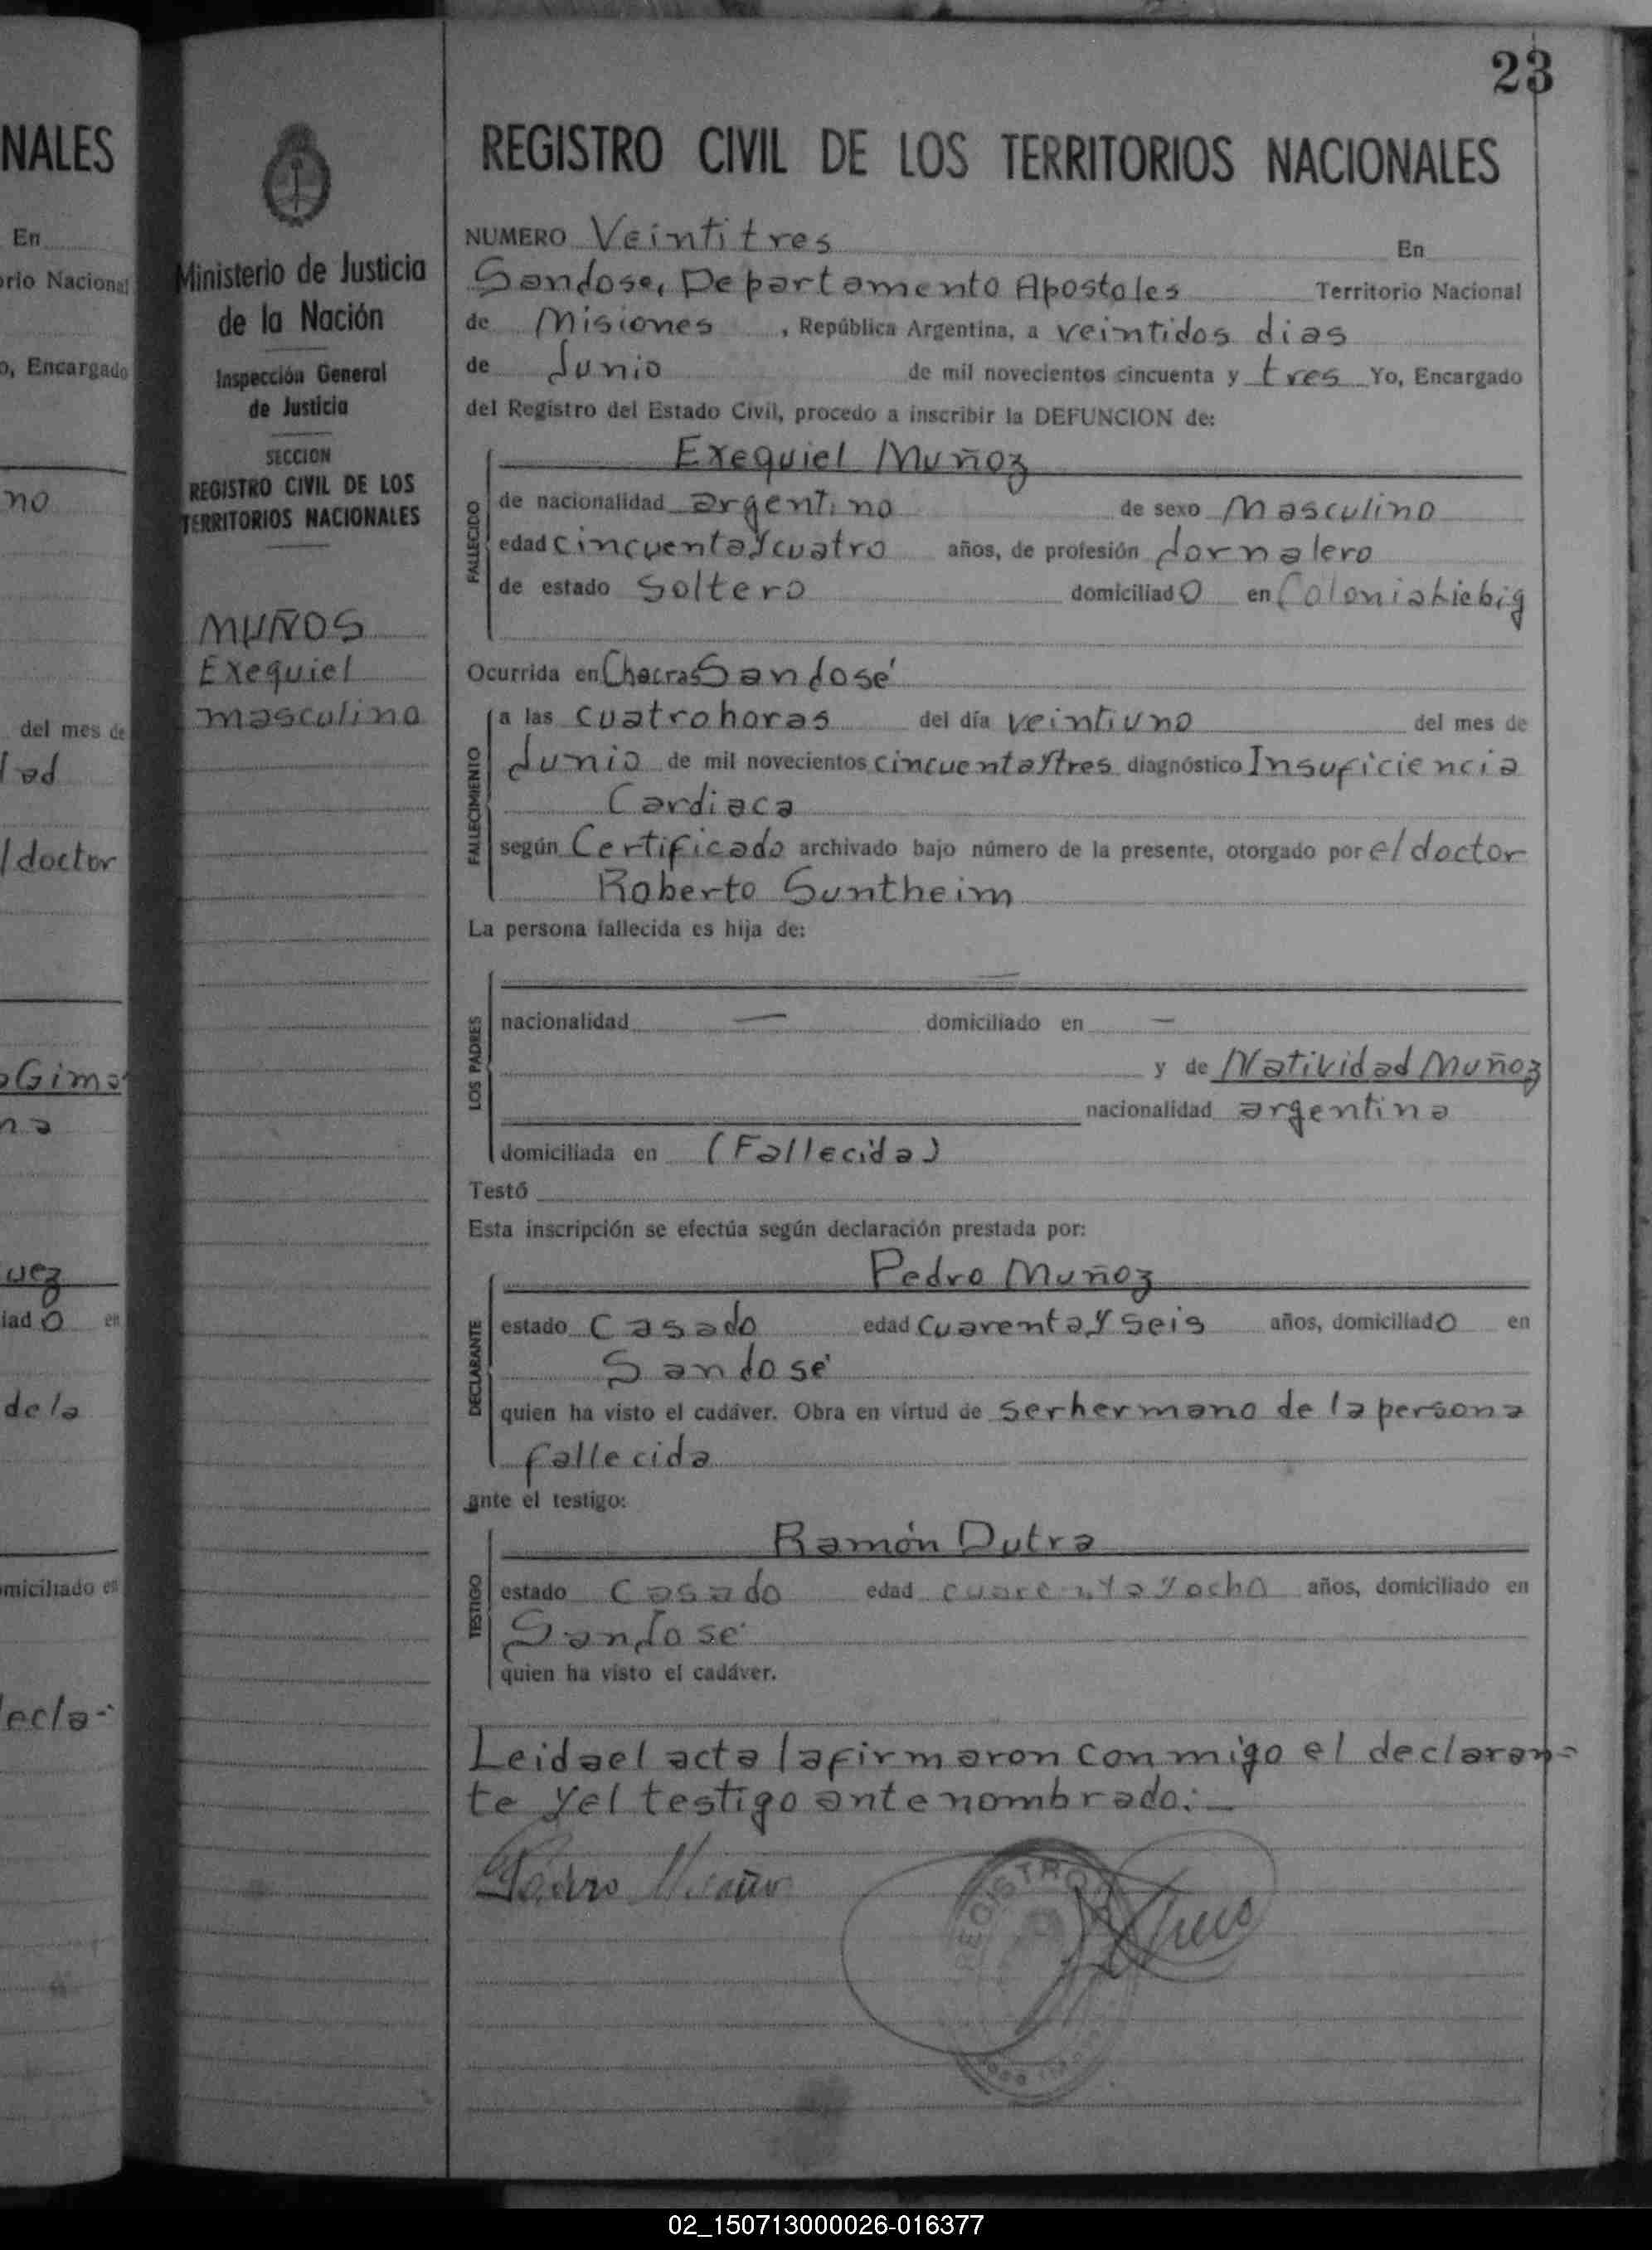 23
NALES
En
rio Nacional
o, Encargado
no
del mes de
dad
l doctor
Gime
na
uez
iad o en
de la
miciliado en
ecla-
Ministerio de Justicia
de la Nación
Inspección General
de Justicia
SECCION
REGISTRO CIVIL DE LOS
TERRITORIOS NACIONALES
MUÑOS
Exequiel
masculino
REGISTRO CIVIL DE LOS TERRITORIOS NACIONALES
NUMERO Veintitres En
San Jose, Departamento Apostoles Territorio Nacional
de Misiones, República Argentina, a veintidos dias
de Junio de mil novecientos cincuenta y tres Yo, Encargado
del Registro del Estado Civil, procedo a inscribir la DEFUNCION de:
Exequiel Muñoz
FALLECIDO
de nacionalidad argentino de sexo Masculino
edad cincuenta y cuatro años, de profesión Jornalero
de estado Soltero domiciliado en Colonia Liebig
Ocurrida en Chacras San José
FALLECIMIENTO
a las cuatro horas del día veintiuno del mes de
Junio de mil novecientos cincuenta y tres diagnóstico Insuficiencia
Cardiaca
según Certificado archivado bajo número de la presente, otorgado por el doctor
Roberto Suntheim
La persona fallecida es hija de:
LOS PADRES
nacionalidad — domiciliado en —
y de Natividad Muñoz
nacionalidad argentina
domiciliada en (Fallecida)
Testó
Esta inscripción se efectúa según declaración prestada por:
Pedro Muñoz
DECLARANTE
estado Casado edad Cuarenta y seis años, domiciliado en
San José
quien ha visto el cadáver. Obra en virtud de ser hermano de la persona
fallecida
ante el testigo:
Ramón Dutra
TESTIGO
estado Casado edad cuarenta y ocho años, domiciliado en
San José
quien ha visto el cadáver.
Leida el acta la firmaron conmigo el declaran=
te y el testigo antenombrado:—
Pedro Muñoz
REGISTRO
02_150713000026-016377